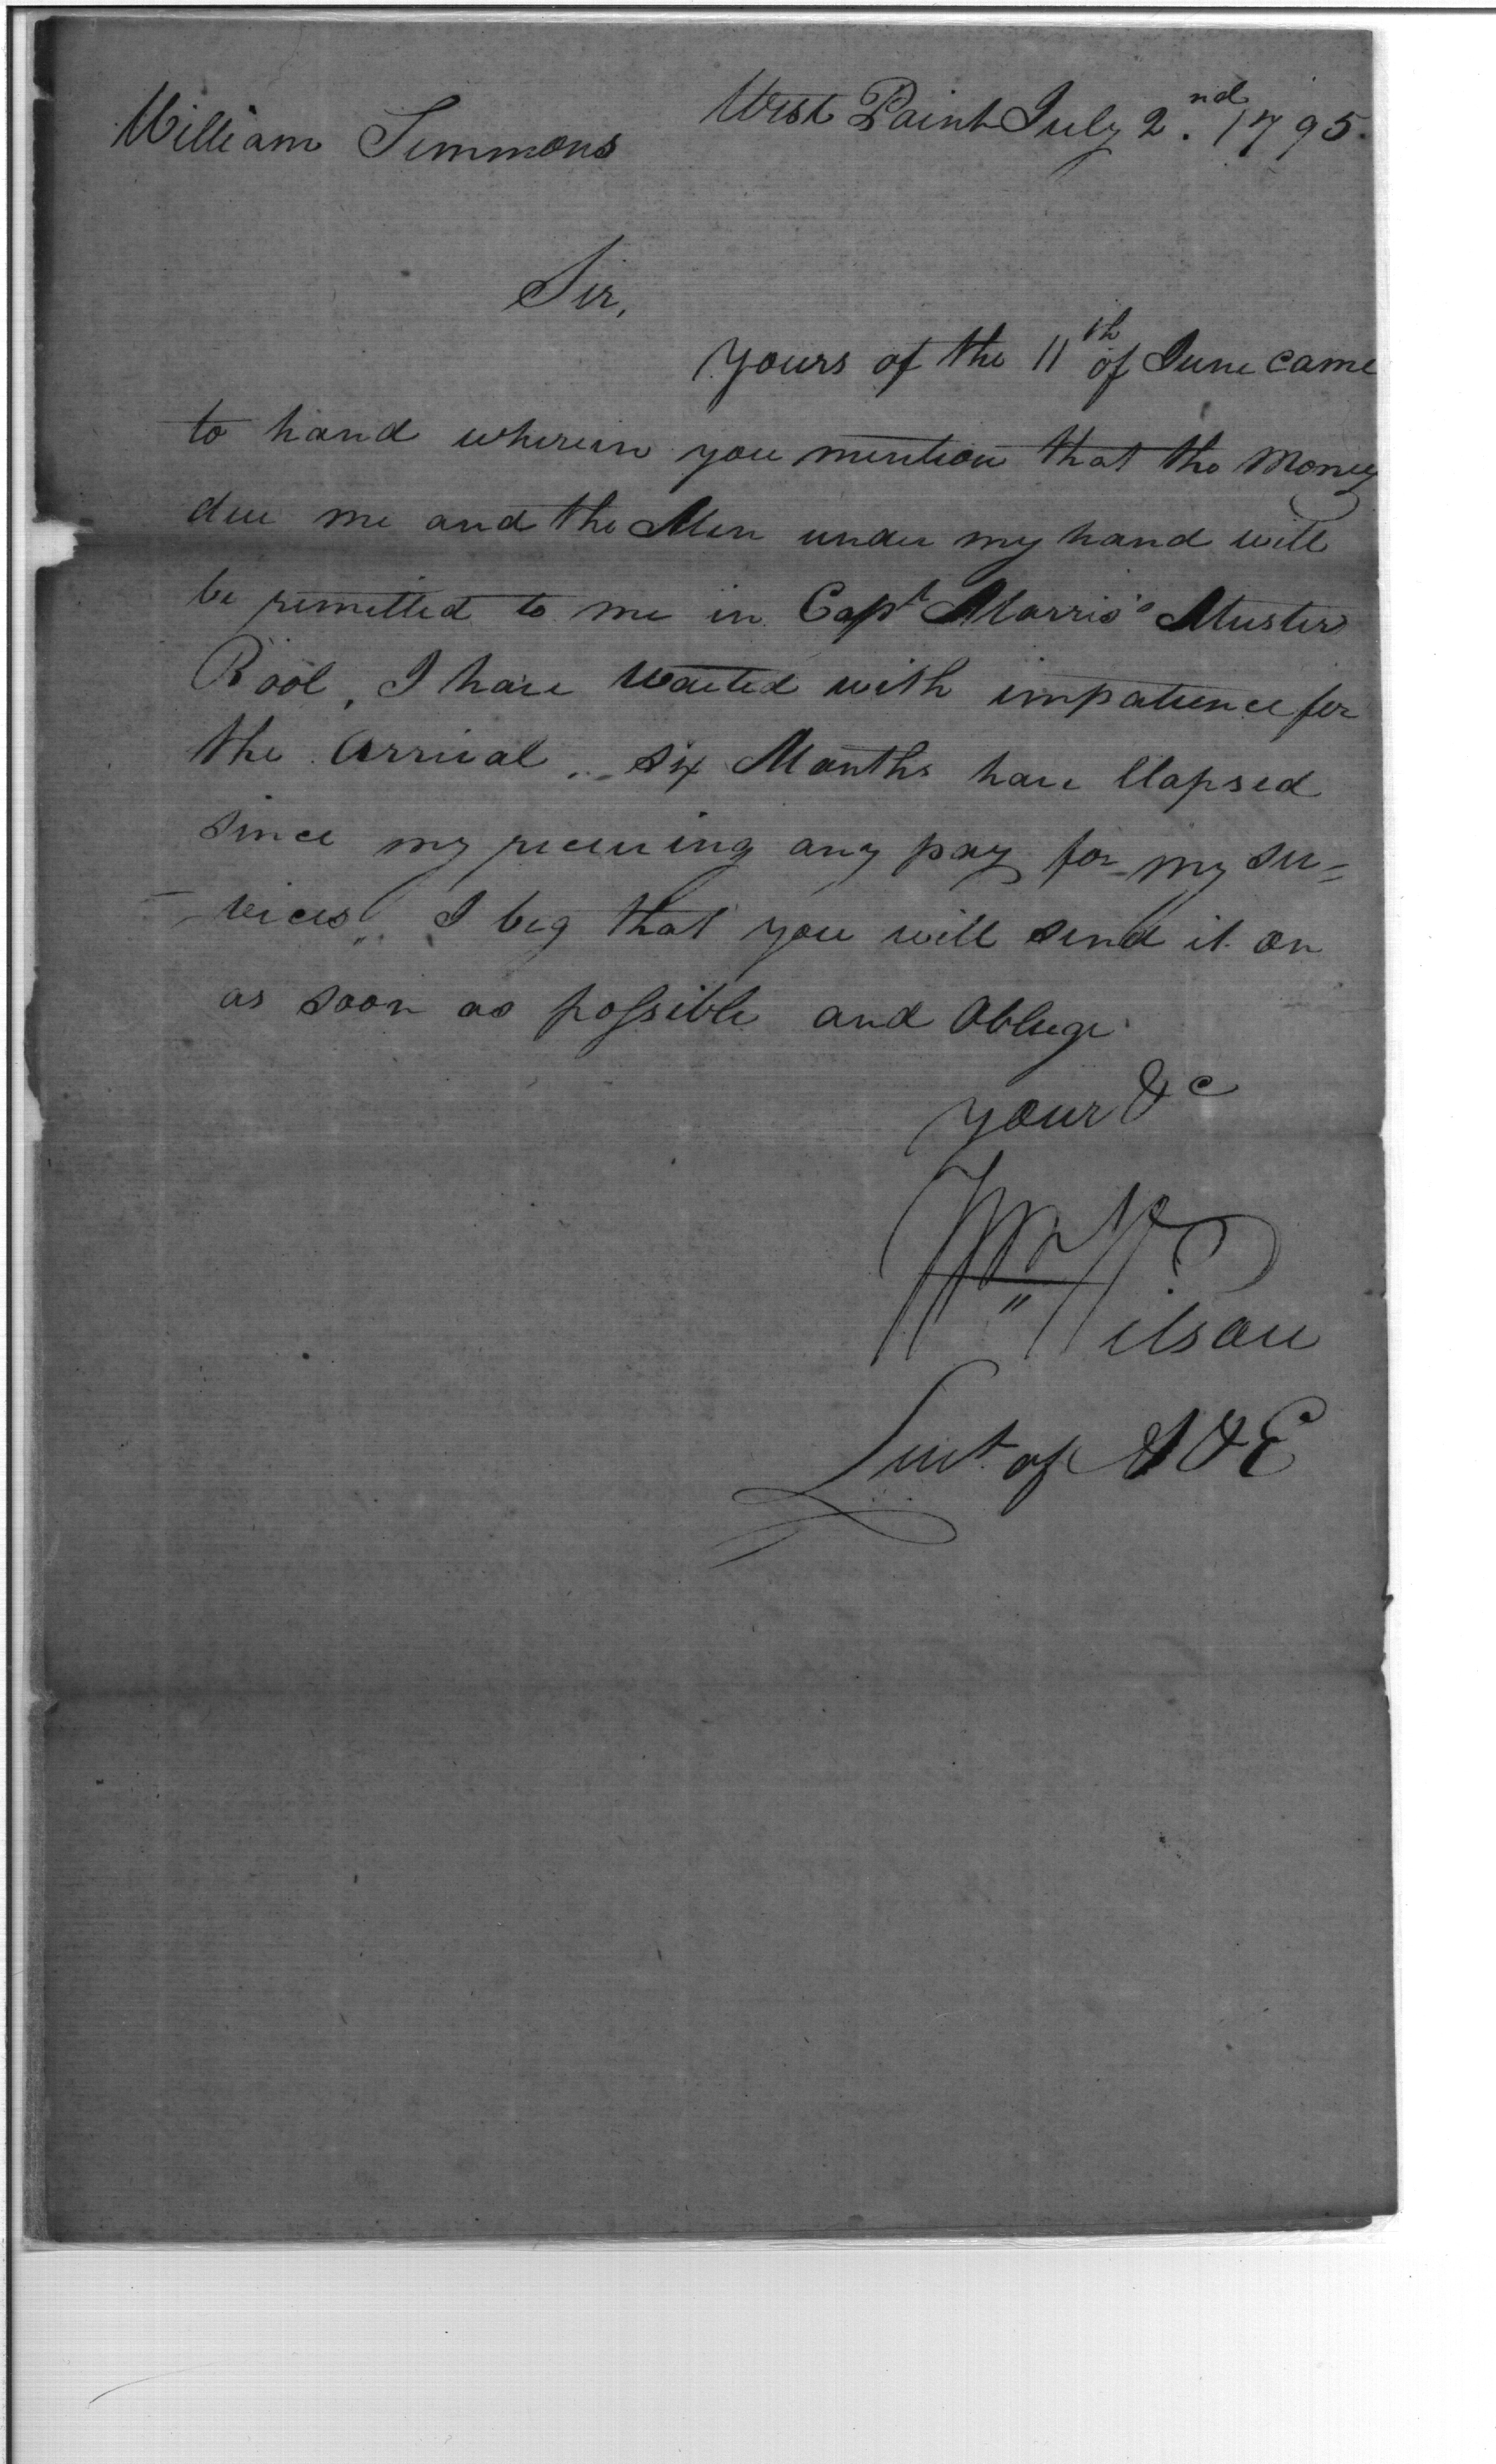 West Point July 2.nd 1795.
William Simmons
Sir,
yours of the 11th of June came
to hand wherein you mention that the Money
due me and the Men under my hand will
be remitted to me in Capt Morris's Muster
Rool, I have waited with impatience for
the Arrival six Months have Elapsed
since my receiving any pay for my ser=
=vices I beg that you will send it on
as soon as possible and Obliege
your &c
Wm Wilson
Lieut of A&E